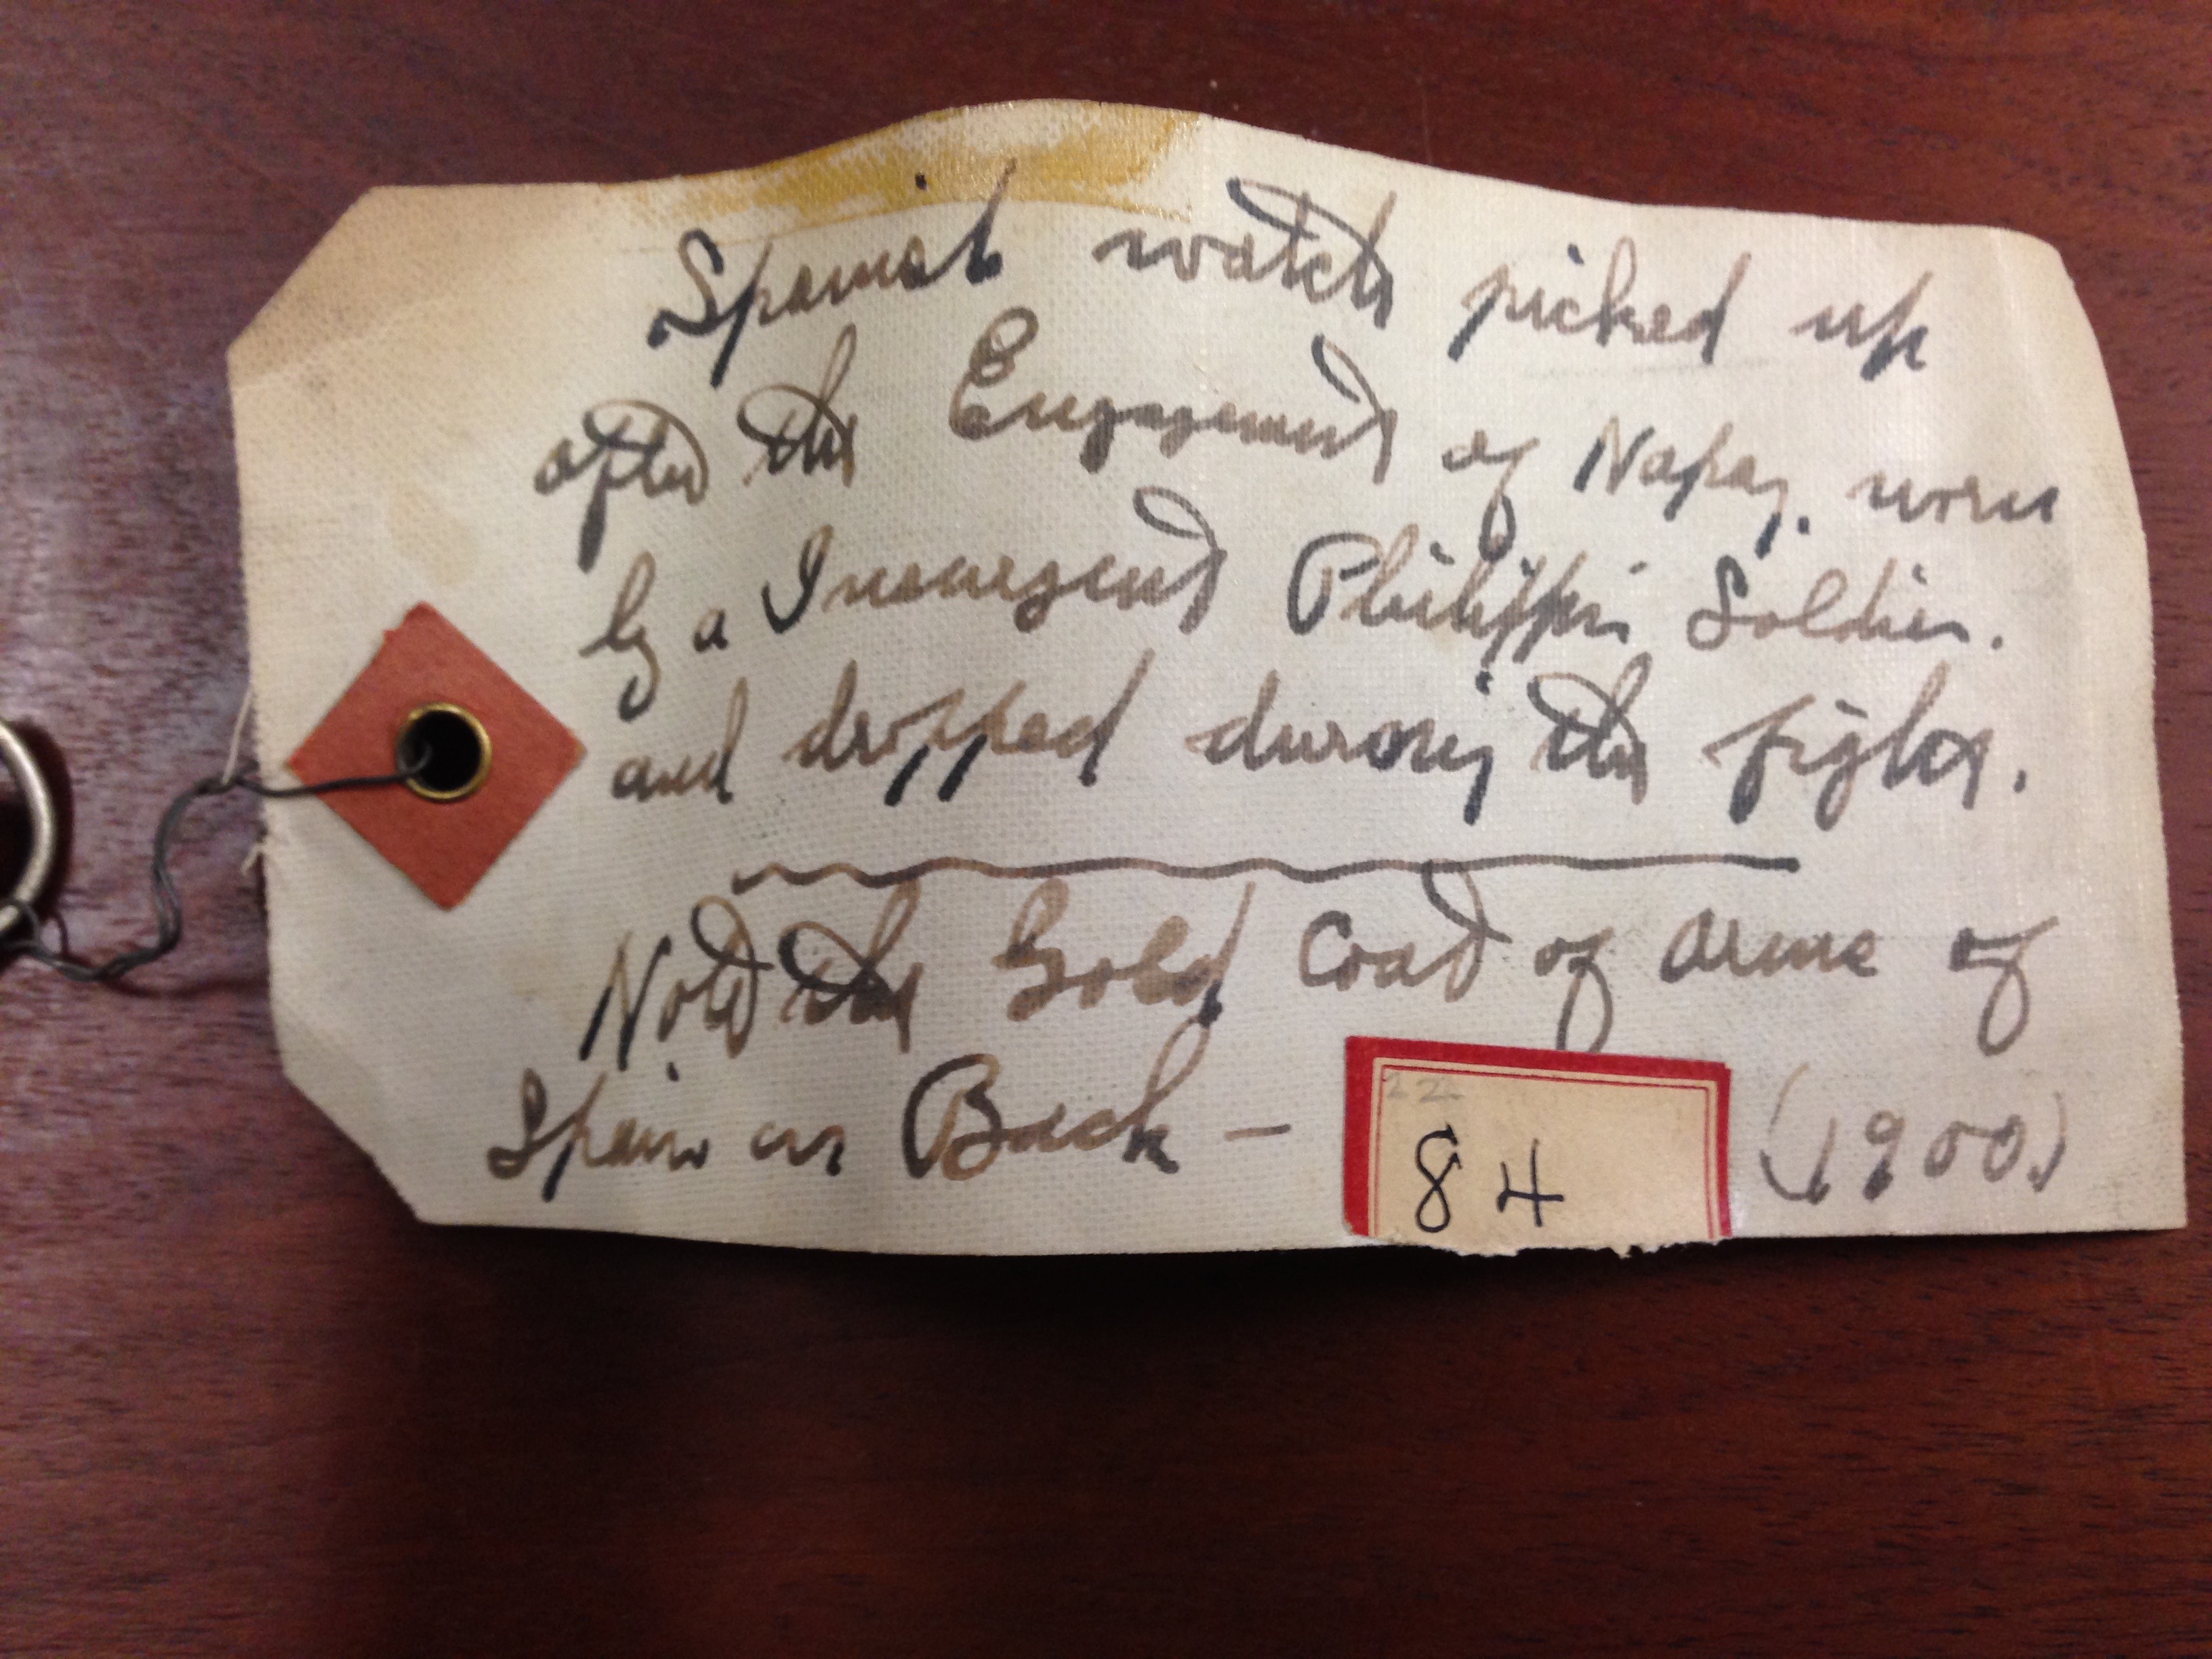 Spanish watch picked up
after the Engagement of Napay. worn
by a Insurgent Philippi Soldier.
and dropped during the fight.
Note the Gold Coat of Arms of
Spain on Back - (1900)
22
84